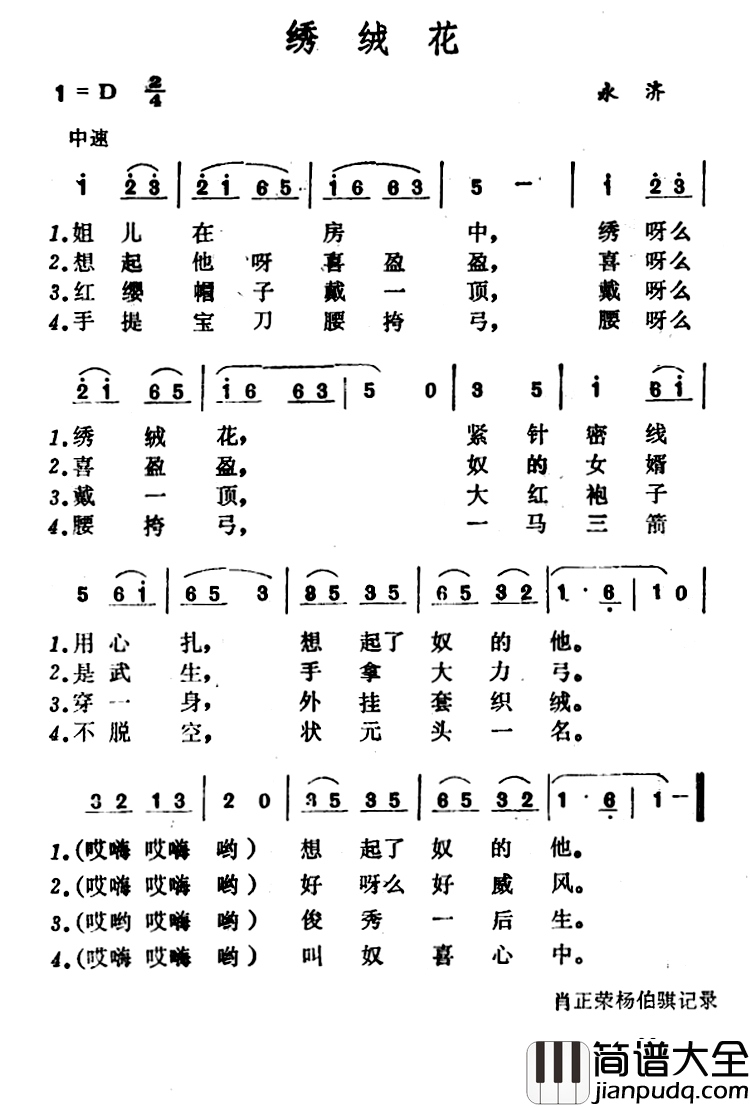 绣绒花
1=D 2/4 永济
中速
i 2 3 | 2 i 6 5 | i 6 6 3 | 5 - | i 2 3 |
1.姐儿在房中，绣呀么
2.想起他呀喜盈盈，喜呀么
3.红缨帽子戴一顶，戴呀么
4.手提宝刀腰挎弓，腰呀么
2 i 6 5 | i 6 6 3 | 5 0 | 3 5 | i 6 i |
1.绣绒花，紧针密线
2.喜盈盈，奴的女婿
3.戴一顶，大红袍子
4.腰挎弓，一马三箭
5 6 i | 6 5 3 | 3 5 3 5 | 6 5 3 2 | 1· 6 | 1 0 |
1.用心扎，想起了奴的他。
2.是武生，手拿大力弓。
3.穿一身，外挂套织绒。
4.不脱空，状元头一名。
3 2 1 3 | 2 0 | 3 5 3 5 | 6 5 3 2 | 1· 6 | 1 - |
1.(哎嗨哎嗨哟)想起了奴的他。
2.(哎嗨哎嗨哟)好呀么好威风。
3.(哎哟哎嗨哟)俊秀一后生。
4.(哎嗨哎嗨哟)叫奴喜心中。
肖正荣杨伯骐记录
简谱大全
jianpudq.com